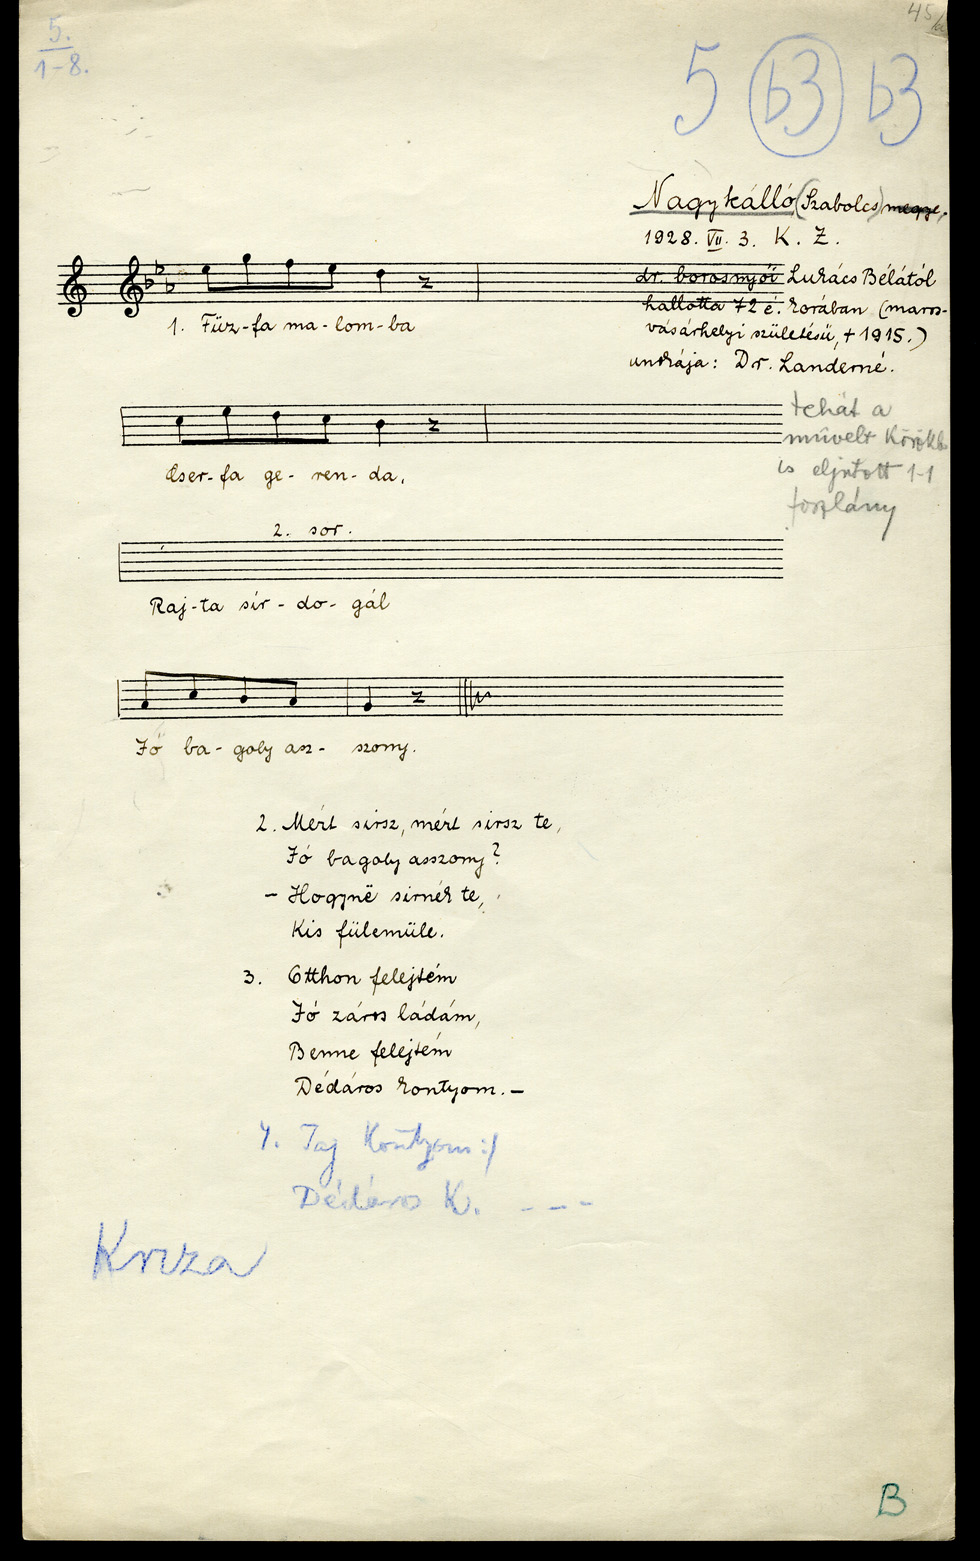 45/a
5.
1-8.
5 b3 b3
Nagykálló (Szabolcs) megye,
1928. VII. 3. K. Z.
dr. borosnyói Lukács Bélától
hallotta 72 é. korában (maros-
vásárhelyi születésű, + 1915.)
unokája: Dr. Landerné.
1. Fűz-fa ma-lom-ba
tehát a
művelt körökb
is eljutott 1-1
foszlány
Cser-fa ge-ren-da,
2. sor.
Raj-ta sír-do-gál
Jó ba-goly asz-szony.
2. Mért sirsz, mért sirsz te,
Jó bagoly asszony?
- Hogynë sirnék te,
Kis fülemüle.
3. Otthon felejtém
Jó záros ládám,
Benne felejtém
Dédáros kontyom. -
4. Taj Kontyom :/
Dédáros K. - - -
Kriza
B